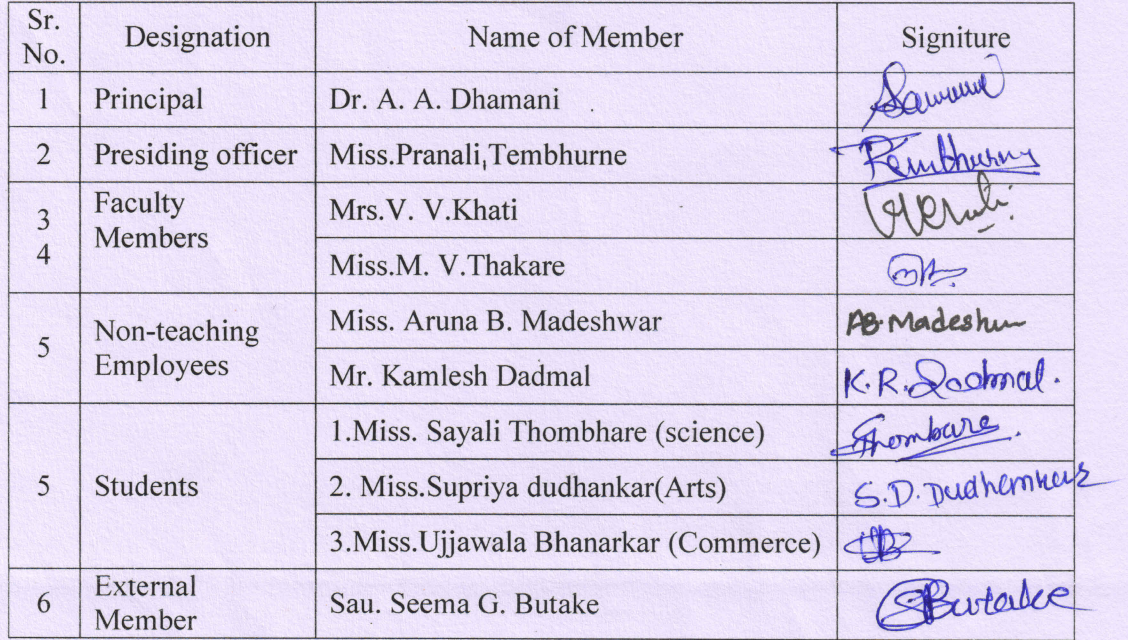 Sr. No. Designation Name of Member Signiture
1 Principal Dr. A. A. Dhamani
2 Presiding officer Miss.Pranali,Tembhurne Tembhurne
3 Faculty Members Mrs.V. V.Khati
4 Miss.M. V.Thakare
5 Non-teaching Employees Miss. Aruna B. Madeshwar AB Madeshw
Mr. Kamlesh Dadmal K.R. Dadmal.
5 Students 1.Miss. Sayali Thombhare (science) Thombare.
2. Miss.Supriya dudhankar(Arts) S.D. Dudhemkar
3.Miss.Ujjawala Bhanarkar (Commerce)
6 External Member Sau. Seema G. Butake SButake